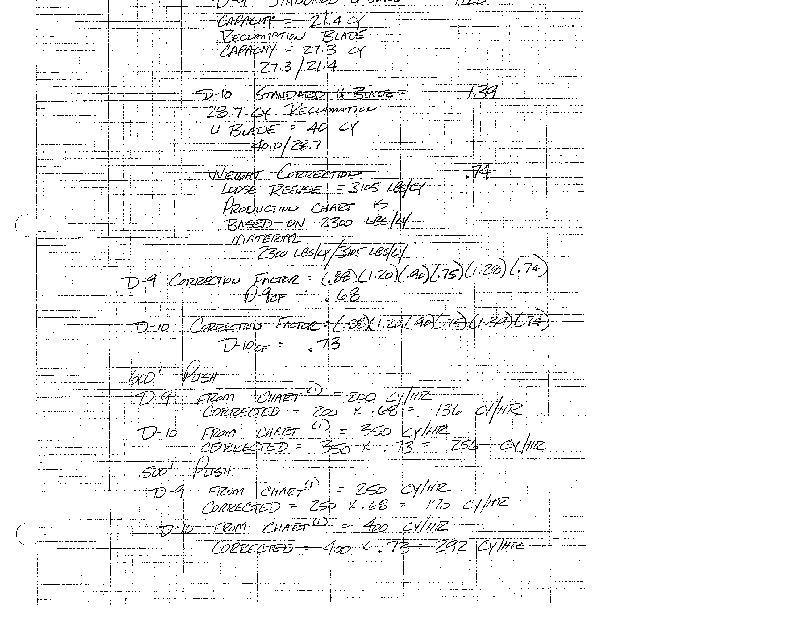 D-9 STANDARD U BLADE 1.28
CAPACITY = 21.4 CY
RECLAMATION BLADE
CAPACITY = 27.3 CY
27.3/21.4
D-10 STANDARD U BLADE = 1.39
28.7 CY RECLAMATION
U BLADE = 40 CY
40.0/28.7
WEIGHT CORRECTION .74
LOOSE REFUSE = 3105 LBS/CY
PRODUCTION CHART IS
BASED ON 2300 LBS/CY
MATERIAL
2300 LBS/CY/3105 LBS/CY
D-9 CORRECTION FACTOR = (.88)(1.20)(.90)(.75)(1.28)(.74)
D-9CF = .68
D-10 CORRECTION FACTOR = (.88)(1.20)(.90)(.75)(1.39)(.74)
D-10CF = .73
600' PUSH
D-9 FROM CHART(1) = 200 CY/HR
CORRECTED = 200 x .68 = 136 CY/HR
D-10 FROM CHART (1) = 350 CY/HR
CORRECTED = 350 x .73 = 256 CY/HR
500' PUSH
D-9 FROM CHART(1) = 250 CY/HR
CORRECTED = 250 x .68 = 170 CY/HR
D-10 FROM CHART(1) = 400 CY/HR
CORRECTED = 400 x .73 = 292 CY/HR